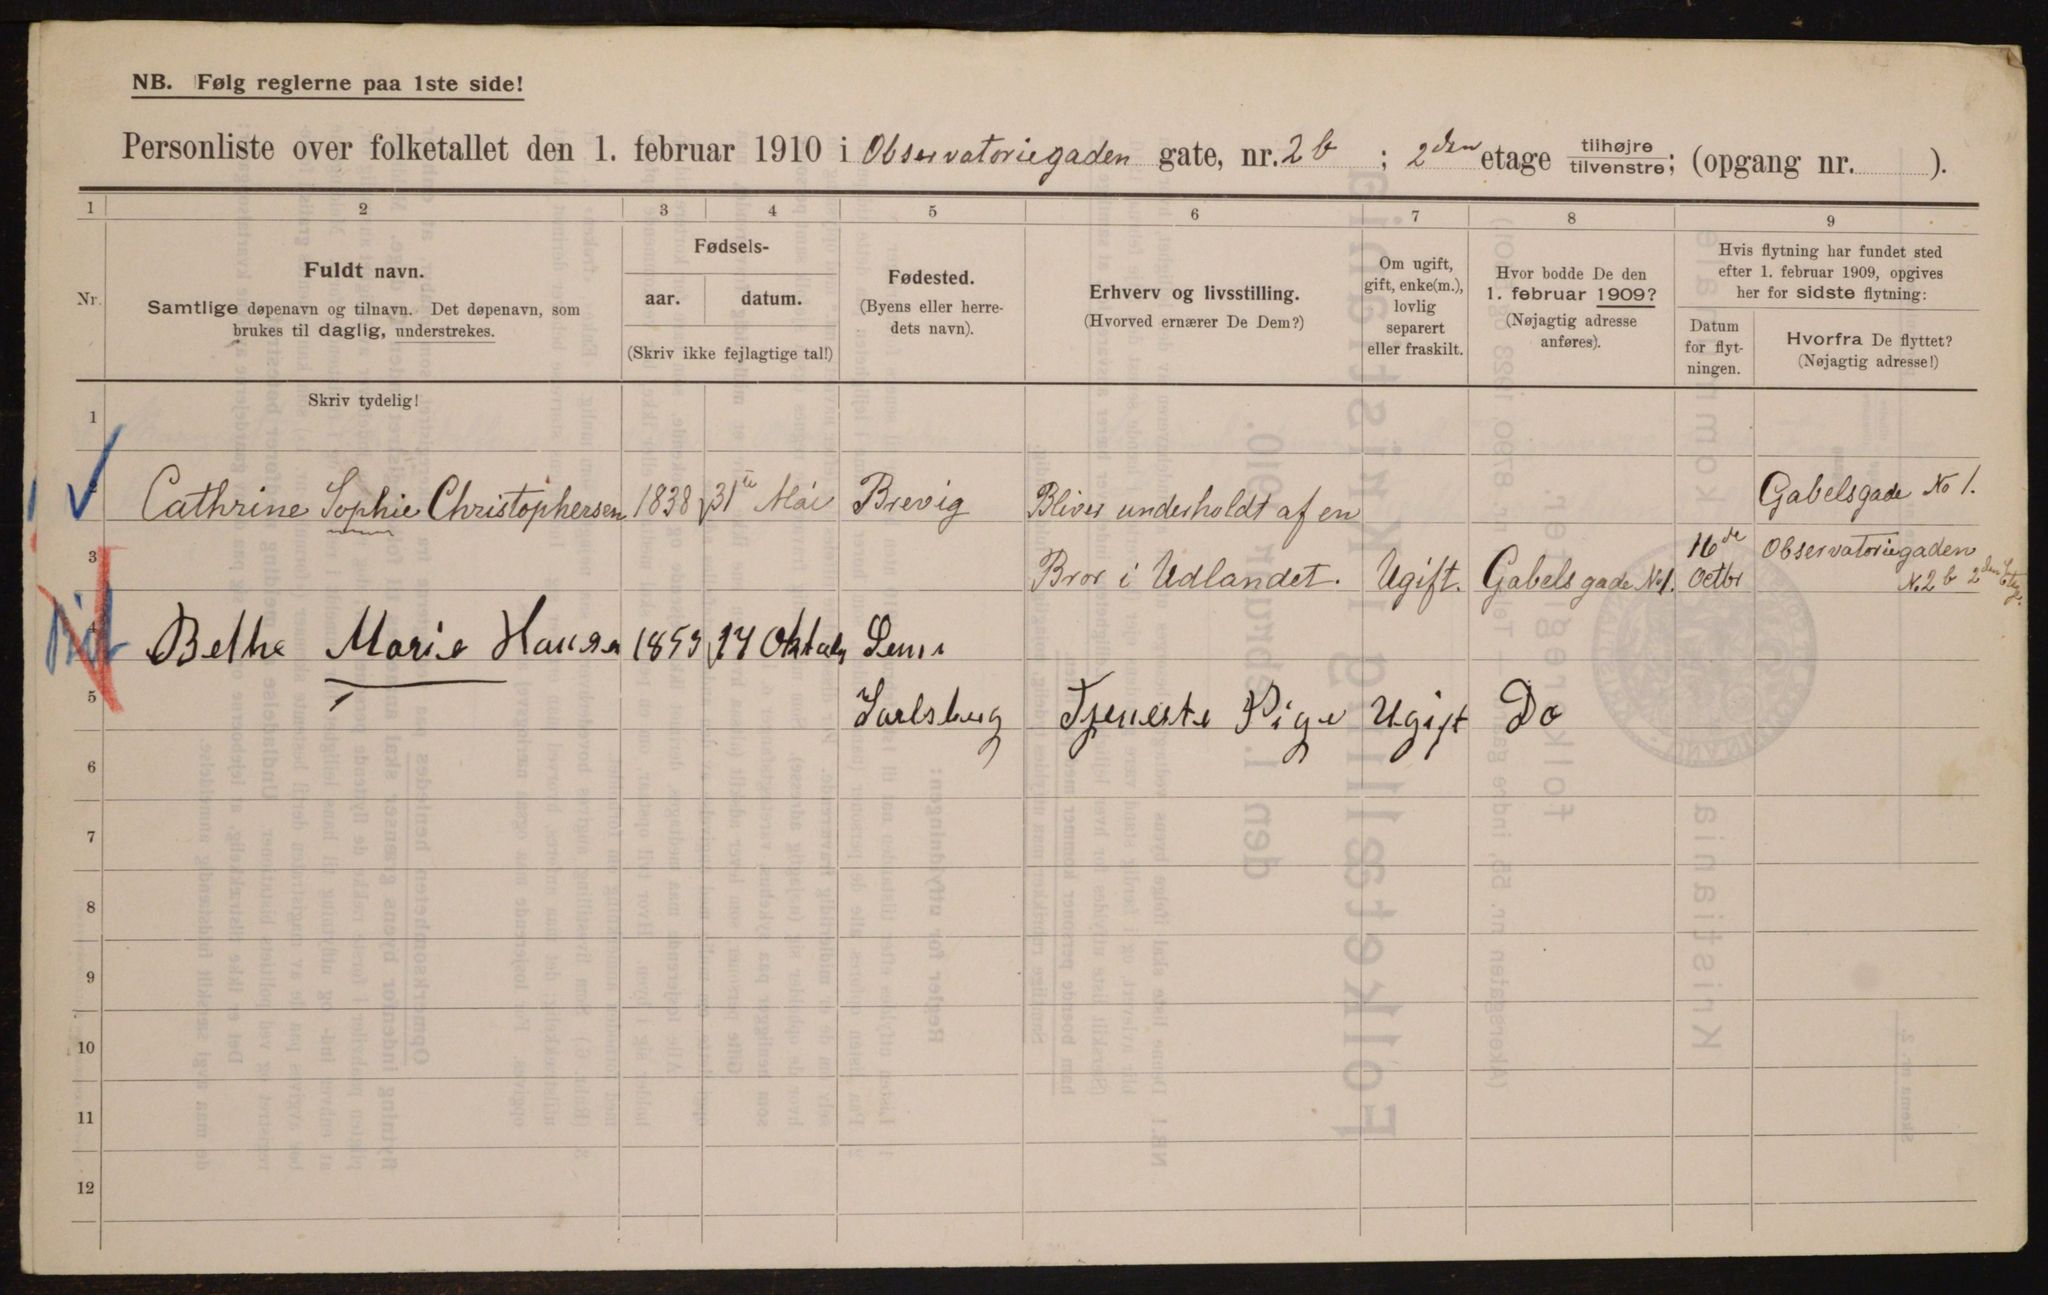 NB. Følg reglerne paa 1ste side!
Personliste over folketallet den 1. februar 1910 i Observatoriegaden gate, nr. 2 b ; 2den etage tilhøjre tilvenstre; (opgang nr. ).
1 2 3 4 5 6 7 8 9
Nr.
Fuldt navn.
Samtlige døpenavn og tilnavn. Det døpenavn, som
brukes til daglig, understrekes.
Fødsels-
aar. datum.
(Skriv ikke fejlagtige tal!)
Fødested.
(Byens eller herre-
dets navn).
Erhverv og livsstilling.
(Hvorved ernærer De Dem?)
Om ugift,
gift, enke(m.),
lovlig
separert
eller fraskilt.
Hvor bodde De den
1. februar 1909?
(Nøjagtig adresse
anføres).
Hvis flytning har fundet sted
efter 1. februar 1909, opgives
her for sidste flytning:
Datum
for flyt-
ningen.
Hvorfra De flyttet?
(Nøjagtig adresse!)
Skriv tydelig!
1
Cathrine Sophie Christophersen 1838 31te Mai Brevig Bliver underholdt af en Gabelsgade No 1.
3
Bror i Udlandet. Ugift. Gabels gade No 1. 16de Octbr Observatoriegaden
N. 2 b 2den Etage.
4
Bethe Marie Hansen 14 Oktober Sem
5
Jarlsberg Tjeneste Pige Ugift Do
6
7
8
9
10
11
12